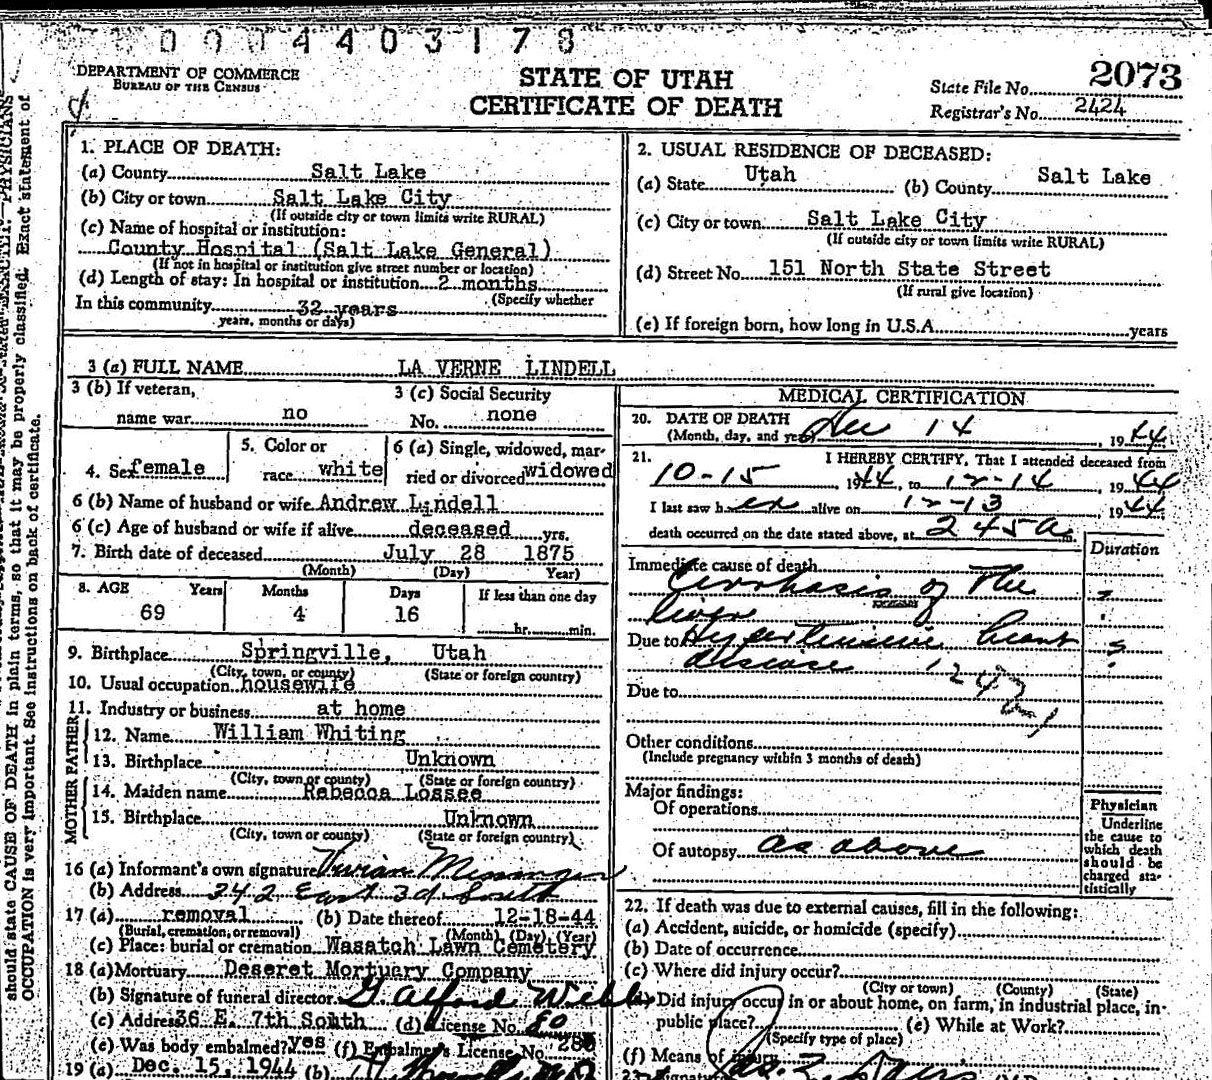 0 0 0 4 4 0 3 1 7 8
DEPARTMENT OF COMMERCE
BUREAU OF THE CENSUS
STATE OF UTAH
CERTIFICATE OF DEATH
State File No. 2073
Registrar's No. 2424
1. PLACE OF DEATH:
(a) County Salt Lake
(b) City or town Salt Lake City
(If outside city or town limits write RURAL)
(c) Name of hospital or institution:
County Hospital (Salt Lake General)
(If not in hospital or institution give street number or location)
(d) Length of stay: In hospital or institution 2 months
(Specify whether
In this community 32 years
years, months or days)
2. USUAL RESIDENCE OF DECEASED:
(a) State Utah (b) County Salt Lake
(c) City or town Salt Lake City
(If outside city or town limits write RURAL)
(d) Street No. 151 North State Street
(If rural give location)
(e) If foreign born, how long in U.S.A. years
3 (a) FULL NAME LA VERNE LINDELL
3 (b) If veteran,
name war no
3 (c) Social Security
No. none
4. Sex female
5. Color or
race white
6 (a) Single, widowed, mar-
ried or divorced widowed
6 (b) Name of husband or wife Andrew Lindell
6 (c) Age of husband or wife if alive deceased yrs.
7. Birth date of deceased July 28 1875
(Month) (Day) Year)
8. AGE Years Months Days If less than one day
69 4 16 hr. min.
9. Birthplace Springville, Utah
(City, town, or county) (State or foreign country)
10. Usual occupation housewife
11. Industry or business at home
FATHER
12. Name William Whiting
13. Birthplace Unknown
(City, town or county) (State or foreign country)
MOTHER
14. Maiden name Rebecca Lossee
15. Birthplace Unknown
(City, town or county) (State or foreign country)
16 (a) Informant's own signature Vivian
(b) Address 342 East 3d South
17 (a) removal (b) Date thereof 12-18-44
(Burial, cremation, or removal) (Month) (Day) (Year)
(c) Place: burial or cremation Wasatch Lawn Cemetery
18 (a) Mortuary Deseret Mortuary Company
(b) Signature of funeral director
(c) Address 36 E. 7th South (d) License No. 80
(e) Was body embalmed? yes (f) Embalmer's License No.
19 (a) Dec. 15, 1944 (b)
MEDICAL CERTIFICATION
20. DATE OF DEATH
(Month, day, and year) Dec 14, 1944
21. I HEREBY CERTIFY, That I attended deceased from
10-15, 1944, to 12-14, 1944
I last saw her alive on 12-13, 1944
death occurred on the date stated above, at 245 a m.
Duration
Immediate cause of death
Cirrhosis of The
liver ?
Due to Hypertensive heart
disease ?
Due to
Other conditions
(Include pregnancy within 3 months of death)
Major findings:
Of operations
Of autopsy as above
Physician
Underline
the cause to
which death
should be
charged sta-
tistically
22. If death was due to external causes, fill in the following:
(a) Accident, suicide, or homicide (specify)
(b) Date of occurrence
(c) Where did injury occur?
(City or town) (County) (State)
Did injury occur in or about home, on farm, in industrial place, in-
public place? (e) While at Work?
(Specify type of place)
(f) Means of injury
should state CAUSE OF DEATH in plain terms, so that it may be properly classified. Exact statement of
OCCUPATION is very important. See instructions on back of certificate.